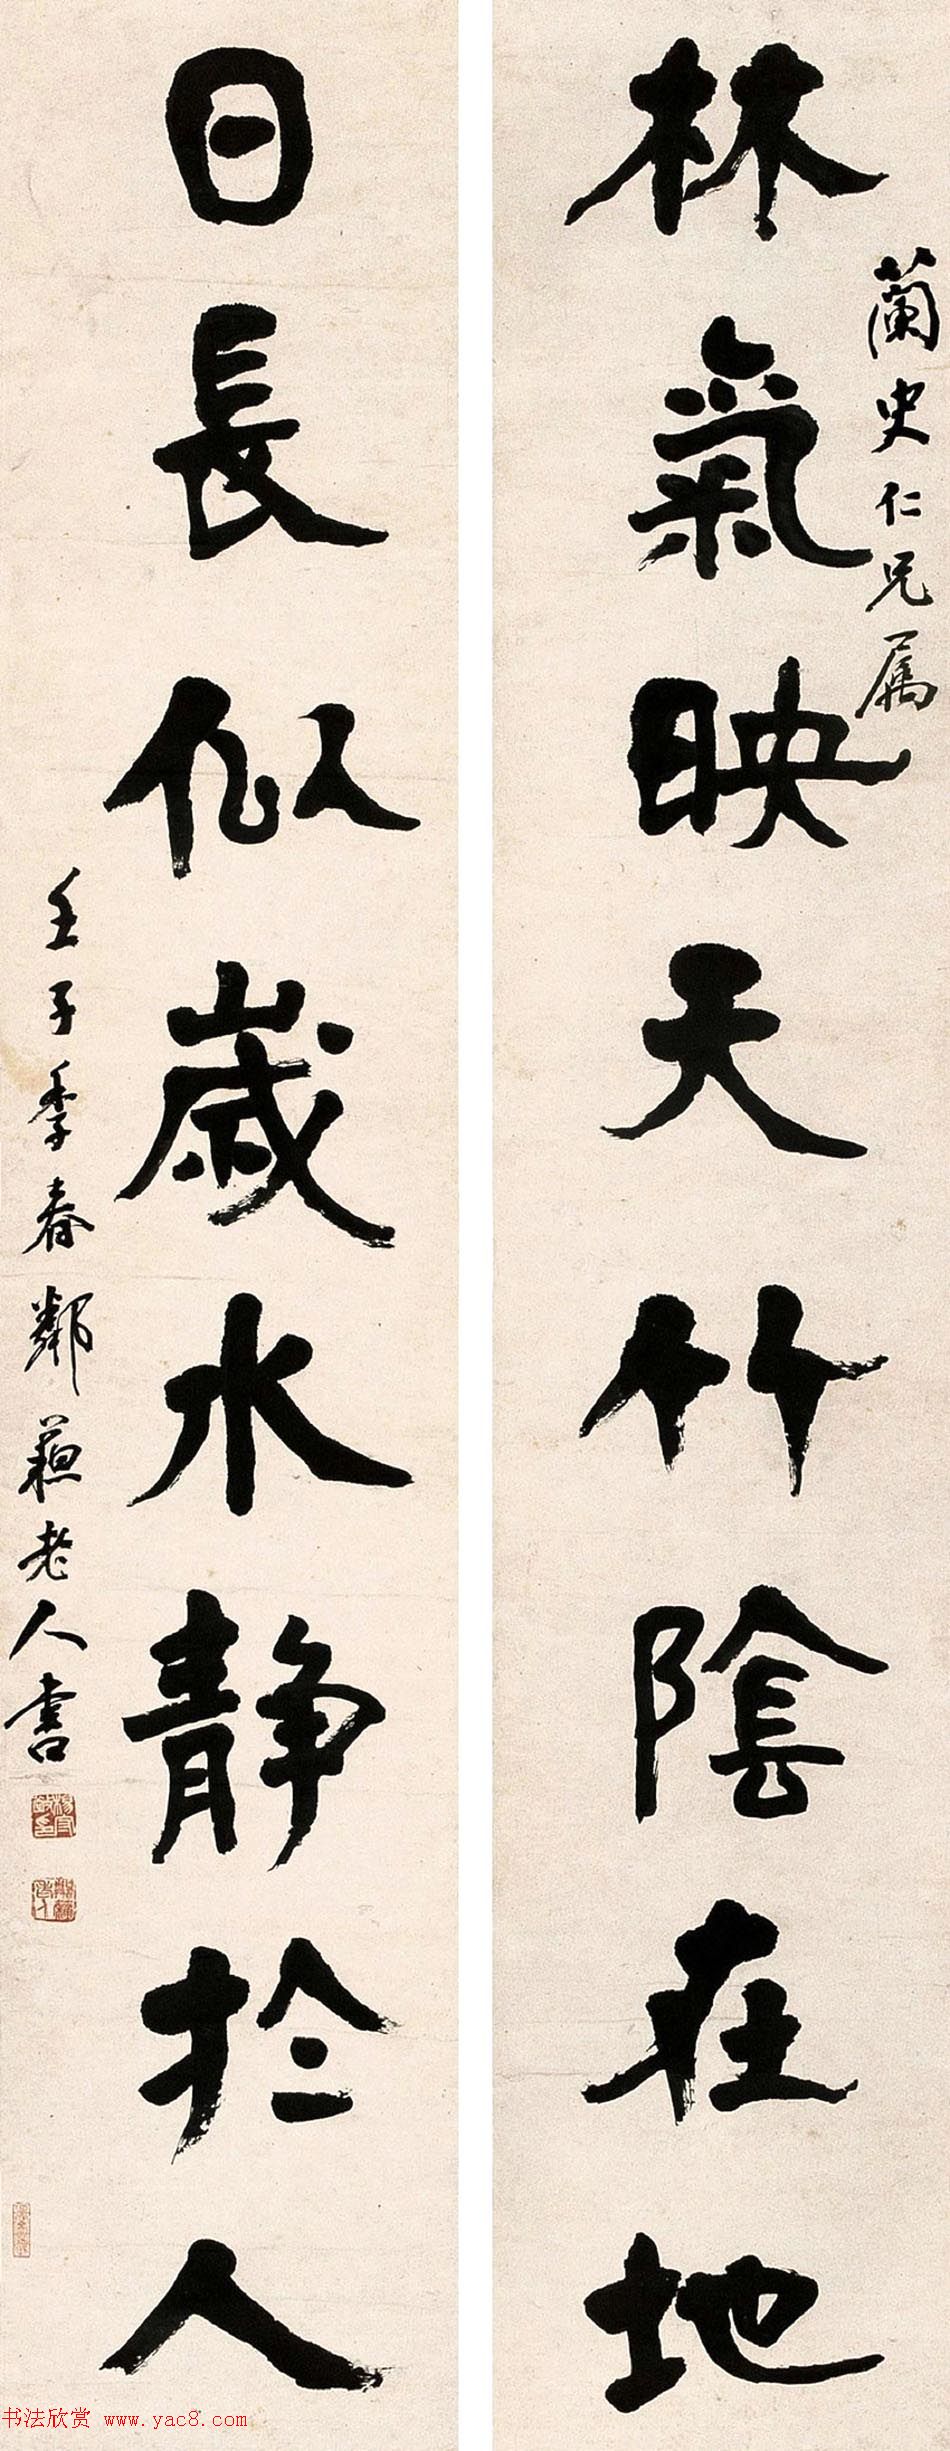 蘭史仁兄属
林氣映天竹陰在地
日長似歲水靜於人
壬子季春鄰蘇老人書
书法欣赏 www.yac8.com